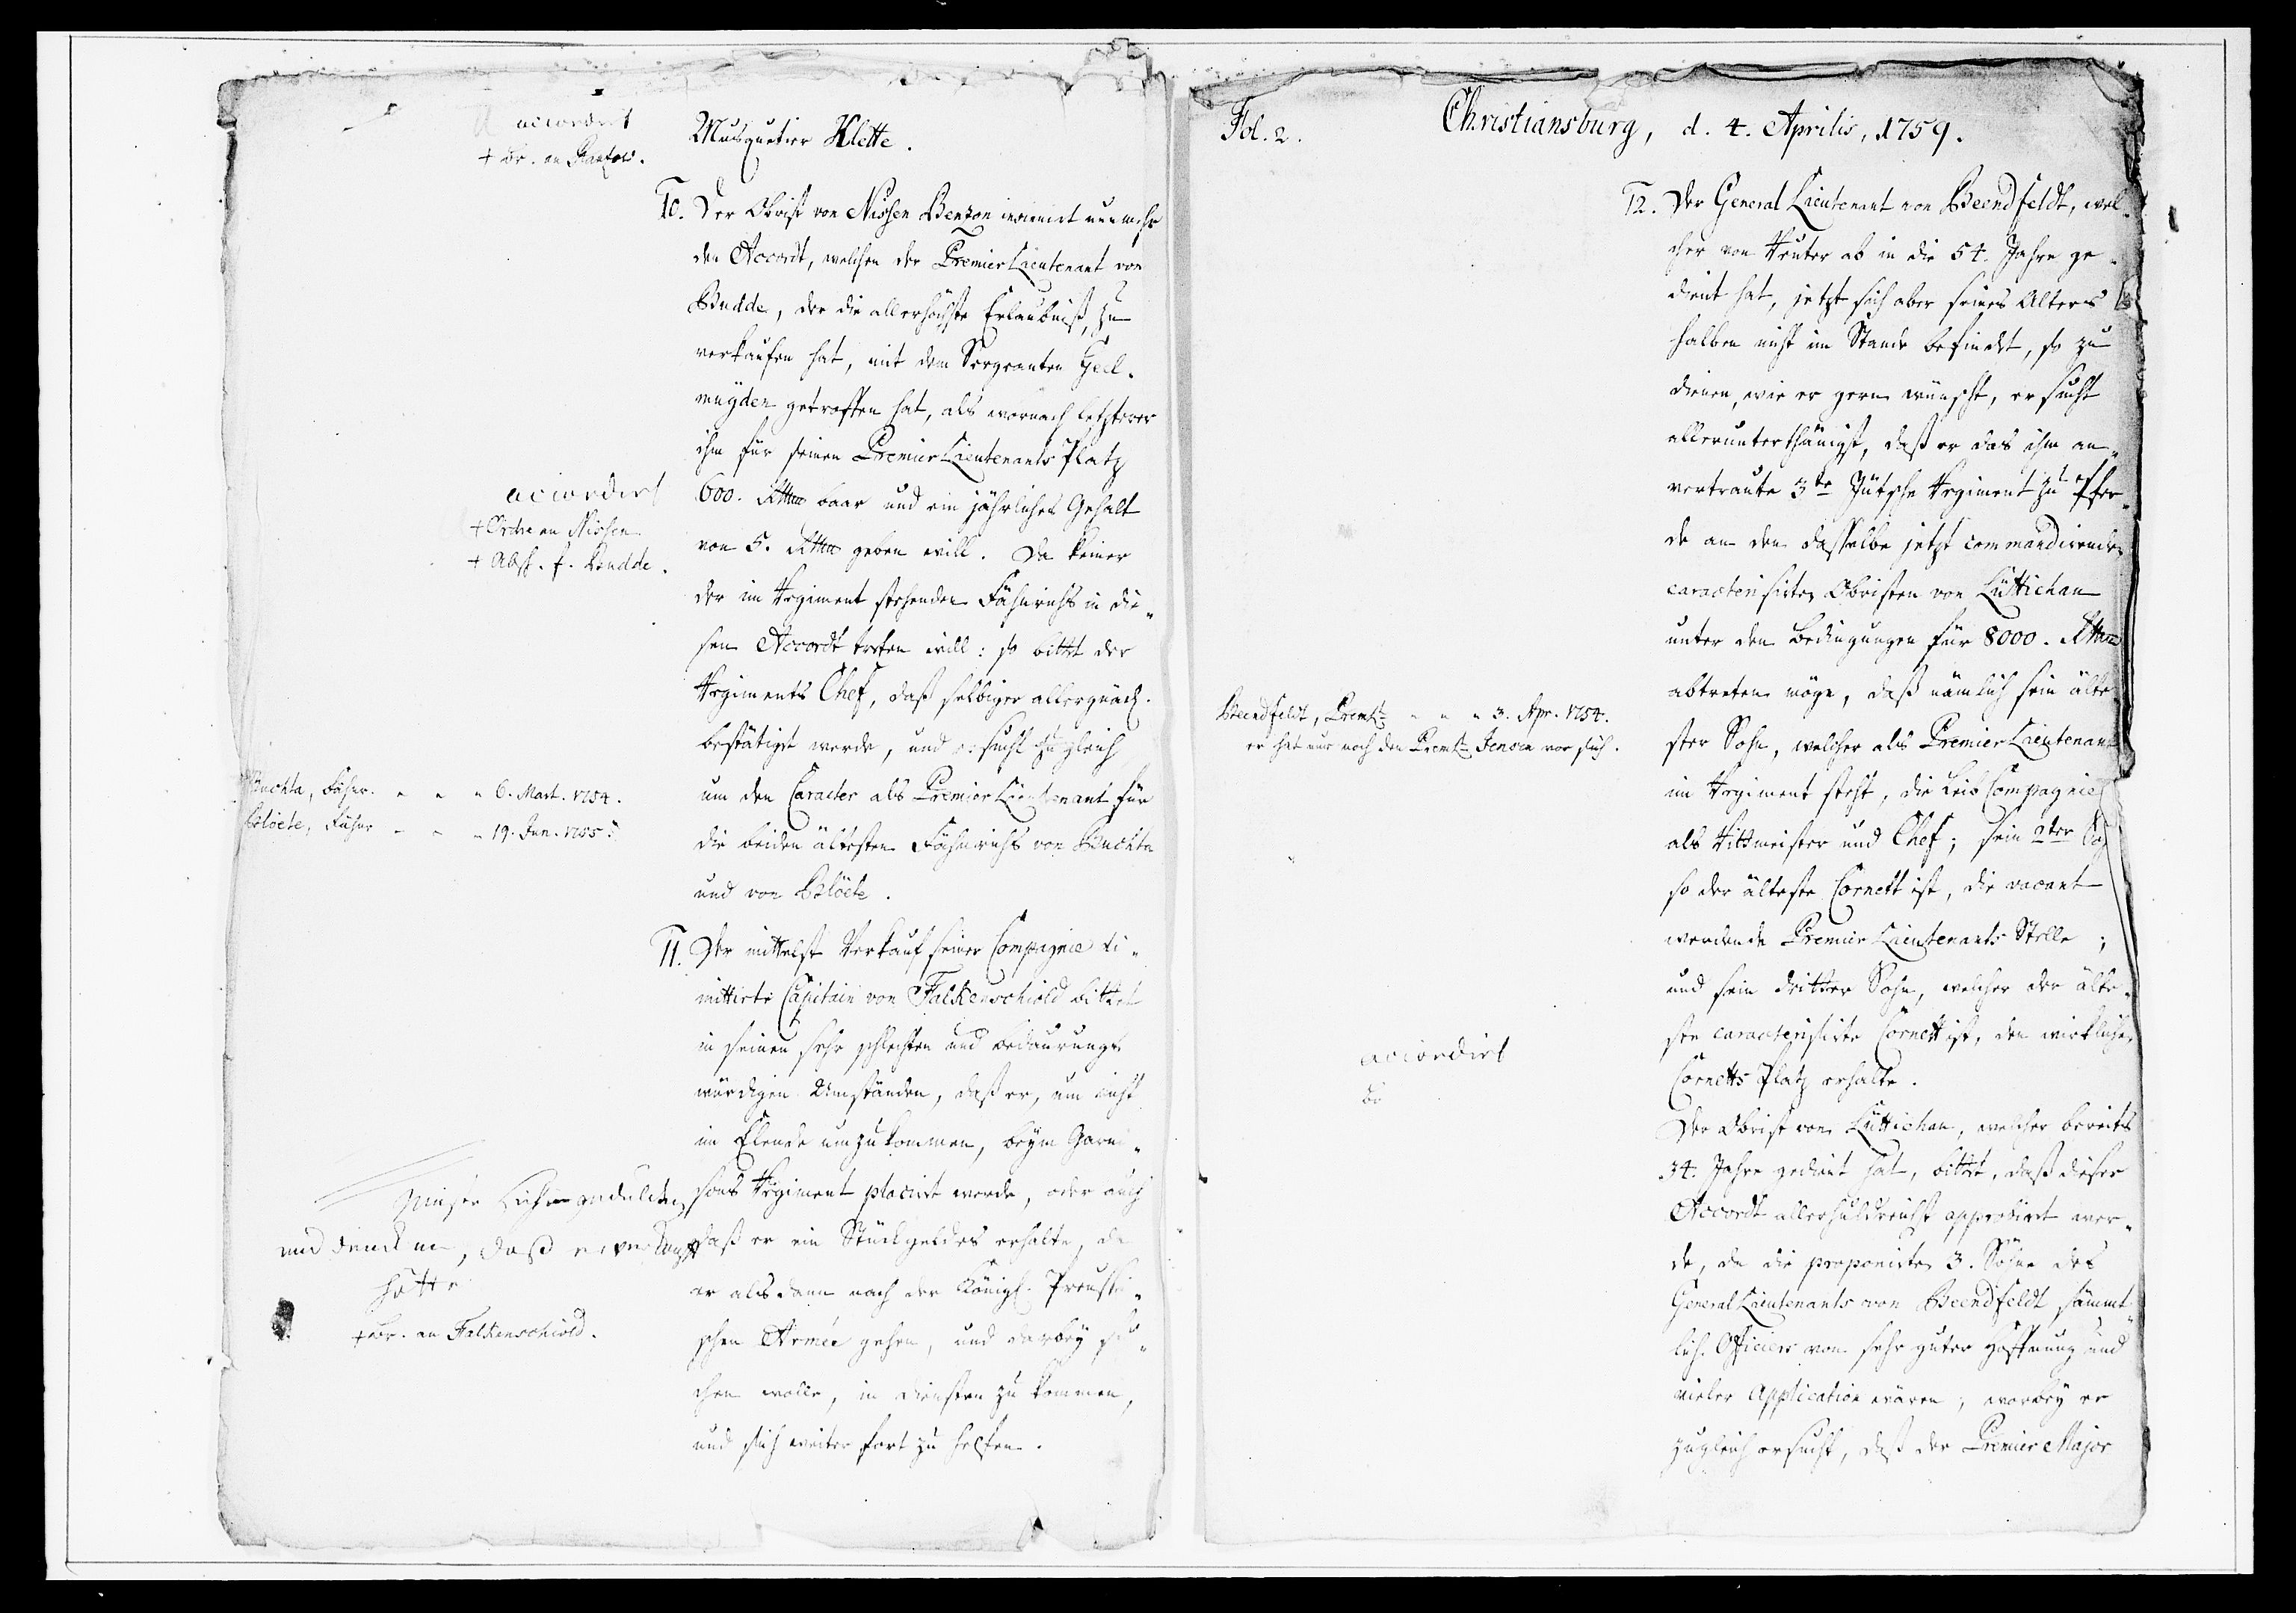 accordirt
+ Br. an Rantzow.
Musquetier Klette.
10. Der Obrist von Nissen Benzon nunmehr
den Accordt, welchen der Premier Lieutenant von
Budde, der die allerhöchste Erlaubniß, zu
verkaufen hat, mit dem Sergeanten Geel-
muyden getroffen hat, als wornach letzterer
ihm für seinen Premier Lieutenants Platz
accordirt
600. Rthlr baar und ein jährliches Gehalt
+ Ordre an Nissen
von 5. Rthlr geben will. Da keiner
+ Absch. f. Budde.
der im Regiment stehenden Fähnrichs in die-
sen Accordt treten will: so bittet der
Regiments Chef, daß selbiger allergnäd.
bestätiget werde, und ersucht zugleich
Buchta, Fähnr. - - - 6. Mart. 1754.
um den Caracter als Premier Lieutenant für
Blöete, Fähnr - - - 19. Jun. 1755.
die beiden ältesten Fähnrichs von Buchta
und von Blöete.
11. Der mittelst Verkauf seiner Compagnie di-
mittirte Capitain von Falkenschiold bittet
in seinen sehr schlechten und bedaurungs
würdigen Umständen, daß er, um nicht
im Elende umzukommen, beym Garni-
sons Regiment placirt werde, oder auch
Müste sich gedulden
und dencken, daß er verkauft
daß er ein Stück geldes erhalte, da
hätte
er alsdann nach der Königl. Preussi-
+ Br. an Falkenschiold.
schen Armée gehen, und darbey su-
chen wolle, in Diensten zu kommen,
und sich weiter fort zu helfen.
Fol. 2.
Christiansburg, d. 4. Aprilis, 1759.
12. Der General Lieutenant von Beendfeldt, wel-
cher von Reuter ab in die 54. Jahre ge-
dient hat, jetzt sich aber seines Alters
halben nicht im Stande befindet, so zu
dienen, wie er gern wünscht, ersucht
allerunterthänigst, daß er das ihm an-
vertraute 3te Jütsche Regiment zu Pfer-
de an den dasselbe jetzt commandirenden
caracterisirten Obristen von Lüttichau
unter den Bedingungen für 8000. Rthlr
abtreten möge, daß nämlich sein älte-
Beendfeldt, Premlt - - - 3. Apr. 1754.
er hat nur noch den Premlt Jensen vor sich.
ster Sohn, welcher als Premier Lieutenant
im Regiment steht, die Leib Compagnie
als Rittmeister und Chef; sein 2ter
so der älteste Cornett ist, die vacant
werdende Premier Lieutenants Stelle;
und sein dritter Sohn, welcher der älte-
ste caracterisirte Cornett ist, den wirklichen
accordirt
Cornetts Platz erhalte.
Br
Der Obrist von Lüttichau, welcher bereits
34. Jahre gedient hat, bittet, daß dieser
Accordt allerhuldreichst approbirt wer-
de, da die proponirten 3. Söhne des
General Lieutenants von Beendfeldt sämmt-
lich Officiers von sehr guter Hoffnung und
vieler Application wären; worbey er
zugleich ersucht, daß der Premier Major